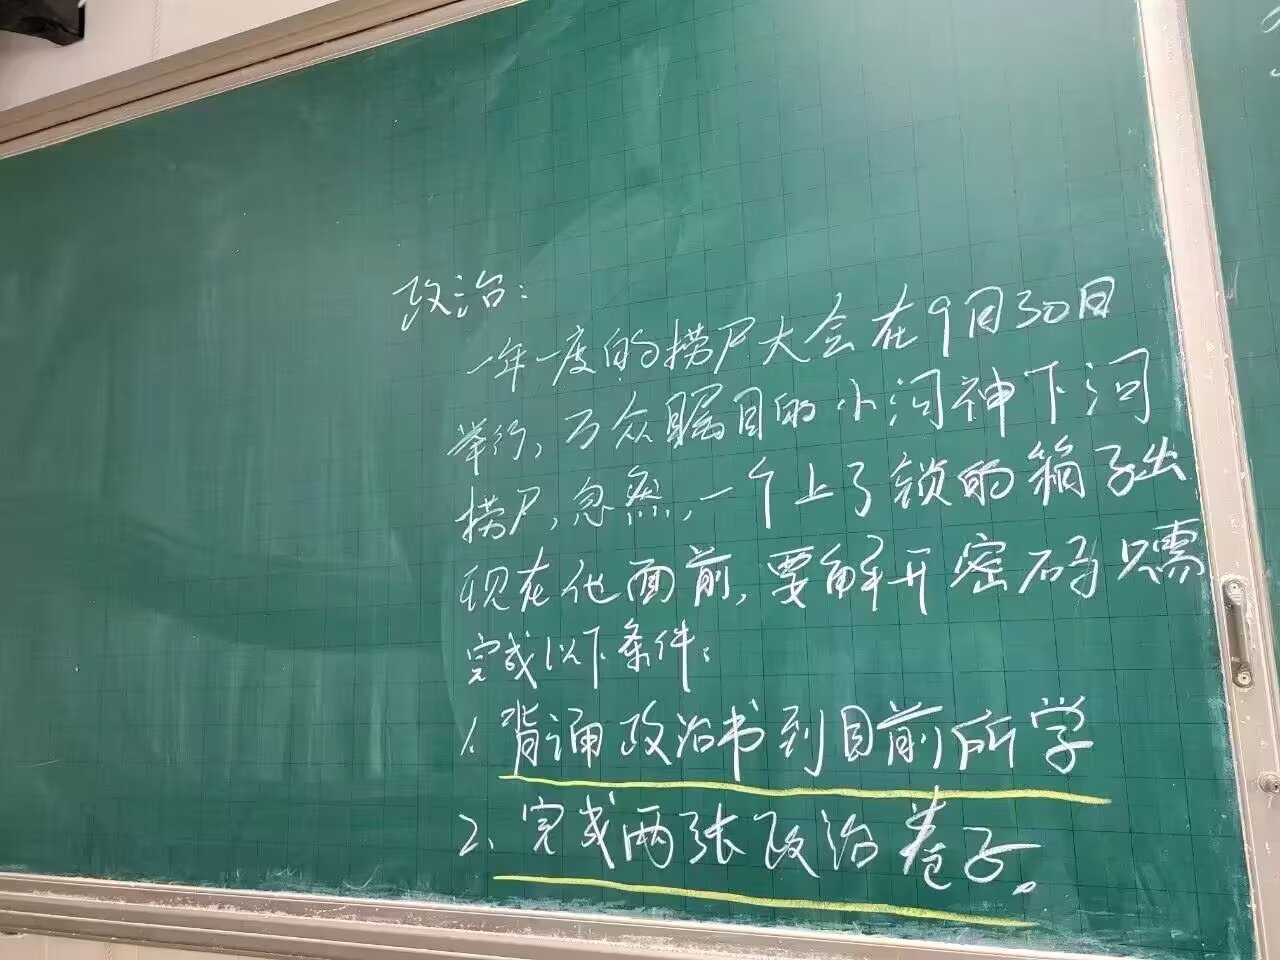 政治:
一年一度的捞尸大会在9月30日
举行,万众瞩目的小河神下河
捞尸,忽然,一个上了锁的箱子出
现在他面前,要解开密码只需
完成以下条件:
1、背诵政治书到目前所学
2、完成两张政治卷子。